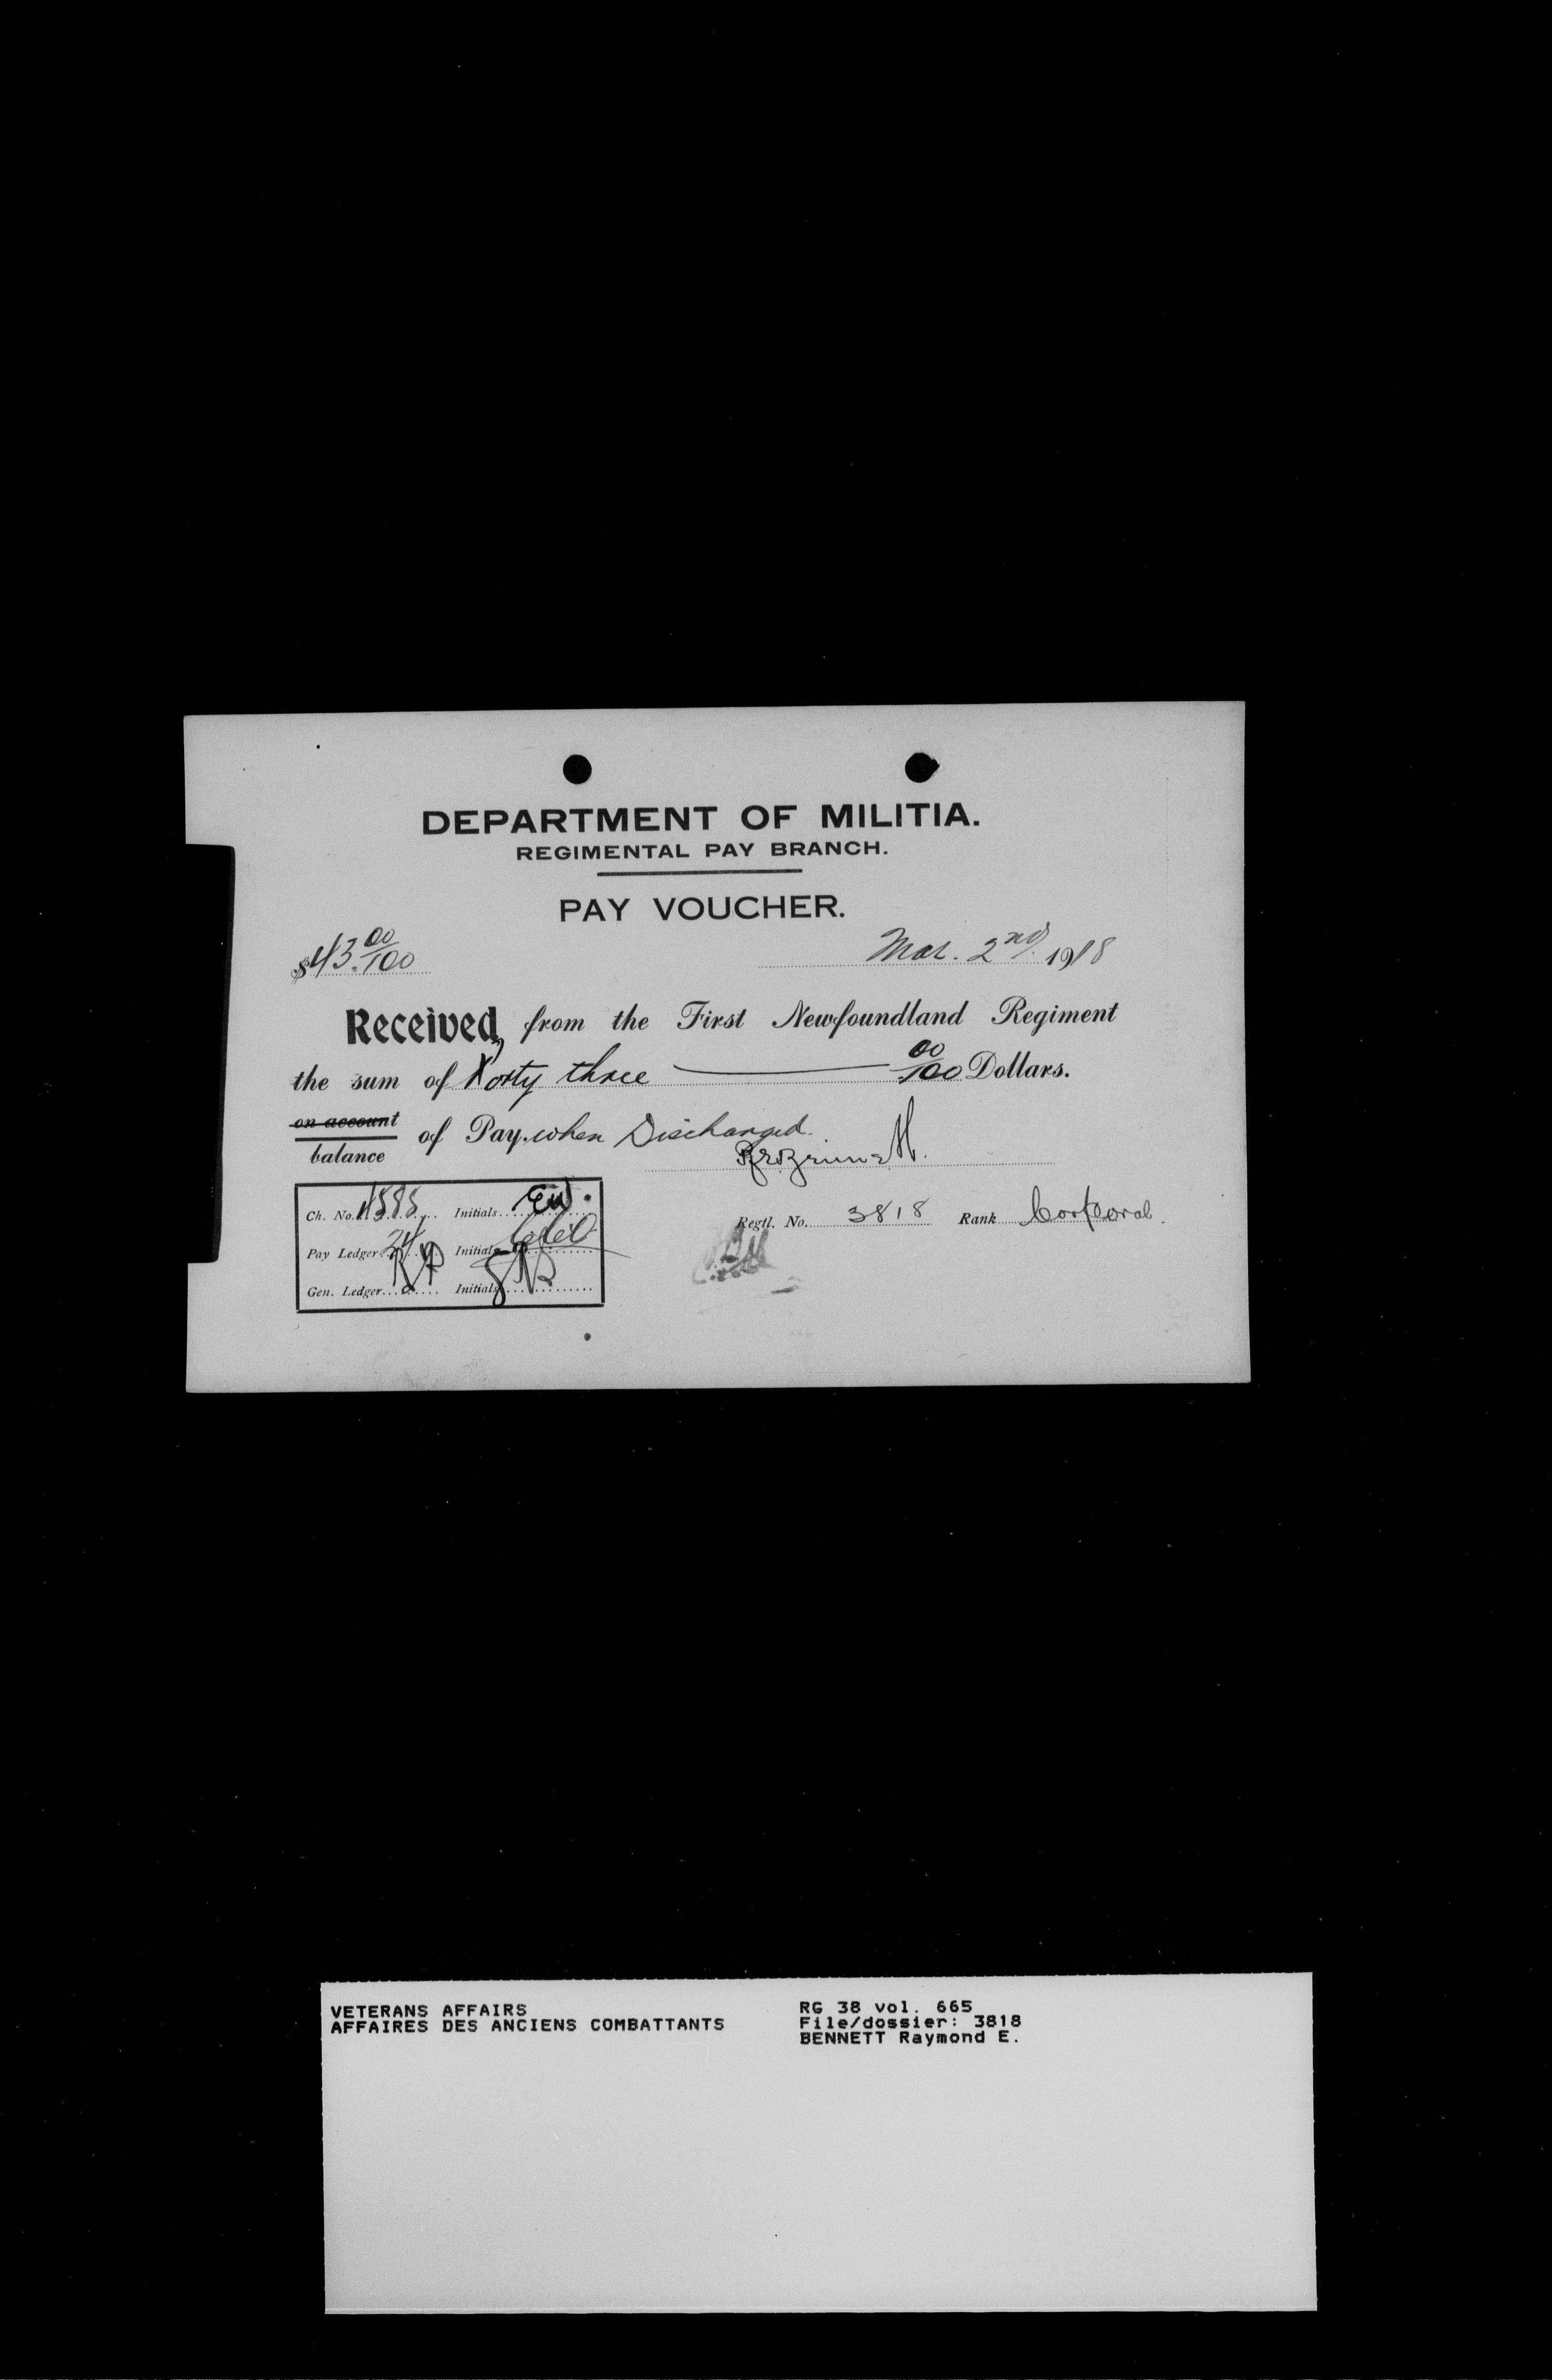 DEPARTMENT OF MILITIA.
REGIMENTAL PAY BRANCH.
PAY VOUCHER.
$43.00/100
Mar. 2nd. 1918
Received, from the First Newfoundland Regiment
the sum of Forty three 00/100 Dollars.
on account
balance of Pay. when Discharged.
Ch. No. Initials EW.
Regtl. No. 3818 Rank Corporal.
Pay Ledger 24 Initials
Gen. Ledger Initials
VETERANS AFFAIRS
AFFAIRES DES ANCIENS COMBATTANTS
RG 38 vol. 665
File/dossier: 3818
BENNETT Raymond E.